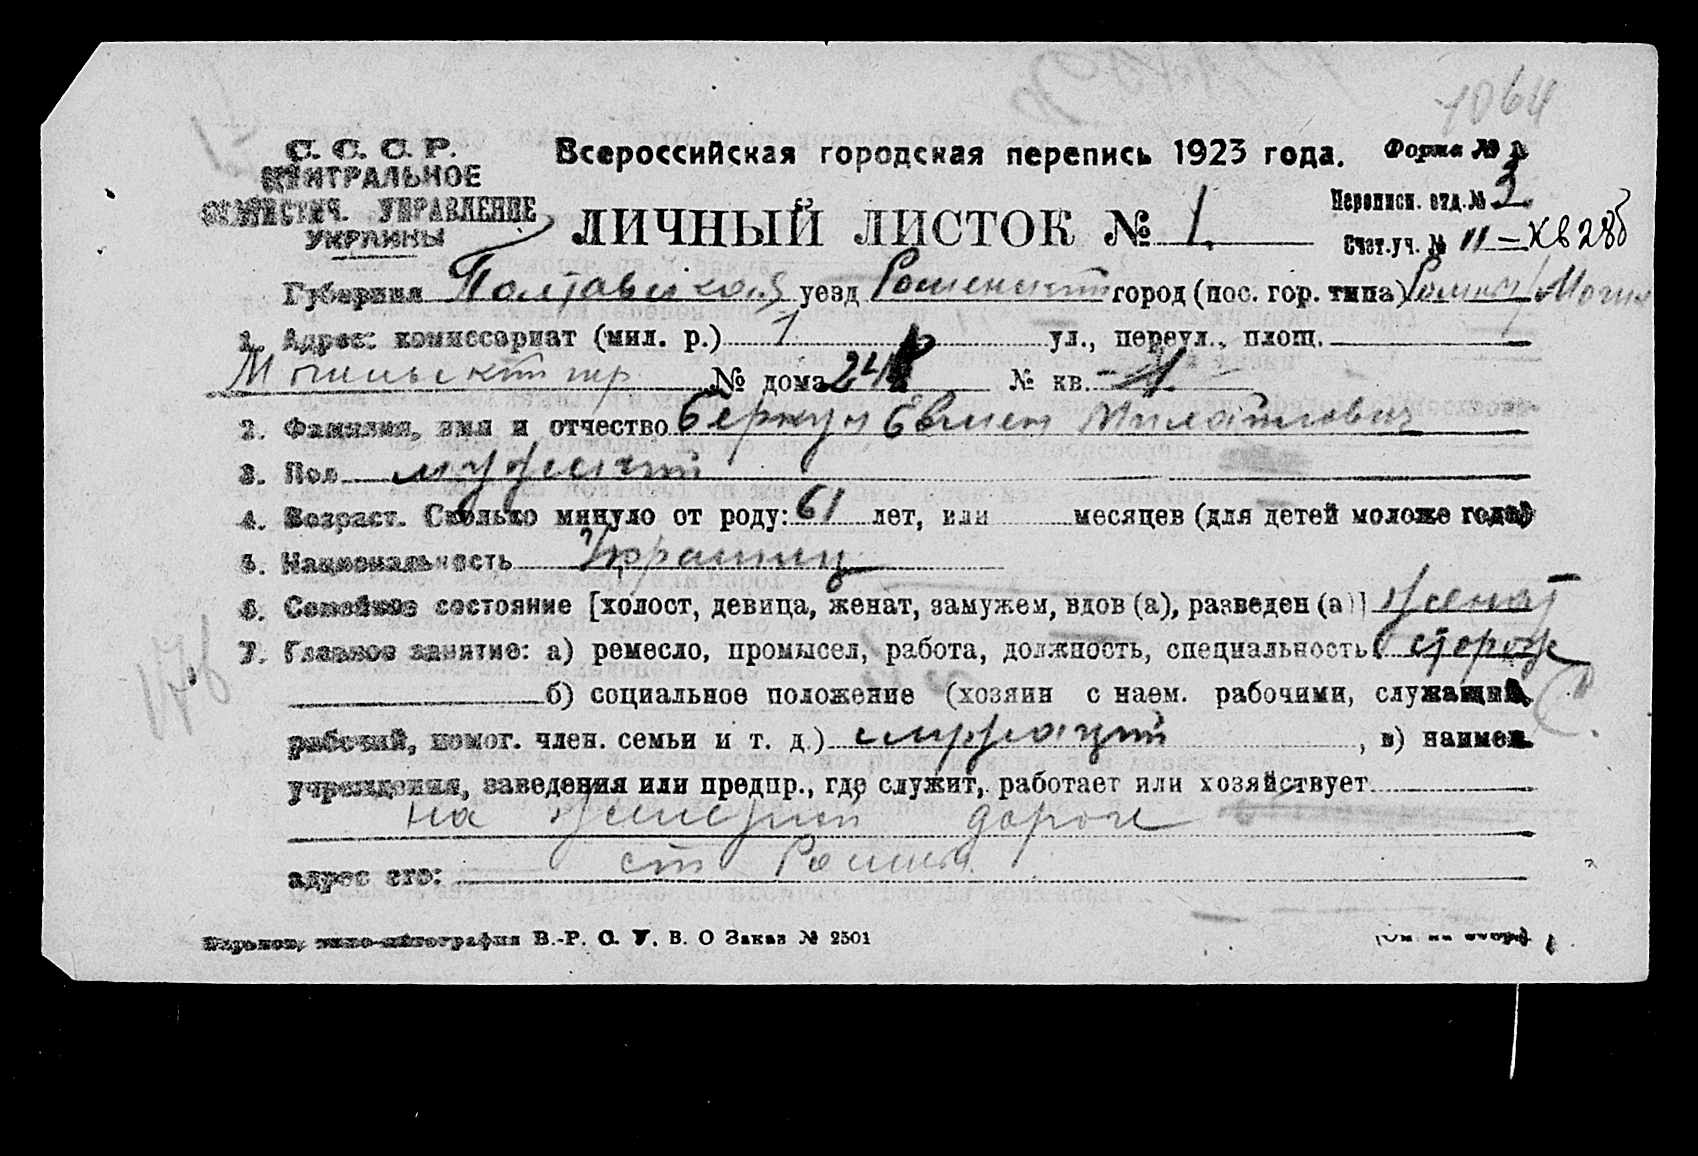 1064
С. С. С. Р.
ЦЕНТРАЛЬНОЕ
СТАТИСТИЧ. УПРАВЛЕНИЕ
УКРАИНЫ
Всероссийская городская перепись 1923 года.
Форма №
Переписн. отд. № 3
ЛИЧНЫЙ ЛИСТОК № 1.
Счет. уч. № 11 — хв 28б
Губерния Полтавской уезд Роменский город (пос. гор. типа) Ромны
1. Адрес: комиссариат (мил. р.) 1 ул., переул., площ.
№ дома 24 № кв. 1
2. Фамилия, имя и отчество Беркун Евмен
3. Пол мужской
4. Возраст. Сколько минуло от роду: 61 лет, или месяцев (для детей моложе года)
5. Национальность Украинец
6. Семейное состояние [холост, девица, женат, замужем, вдов (а), разведен (а)] женат
7. Главное занятие: а) ремесло, промысел, работа, должность, специальность сторож
б) социальное положение (хозяин с наем. рабочими, служащий,
рабочий, помог. член. семьи и т. д.) служащий, в) наимен.
учреждения, заведения или предпр., где служит, работает или хозяйствует
на дороге
адрес его: ст Ромны
176
типо-литография В.-Р. О. У. В. О Заказ № 2501